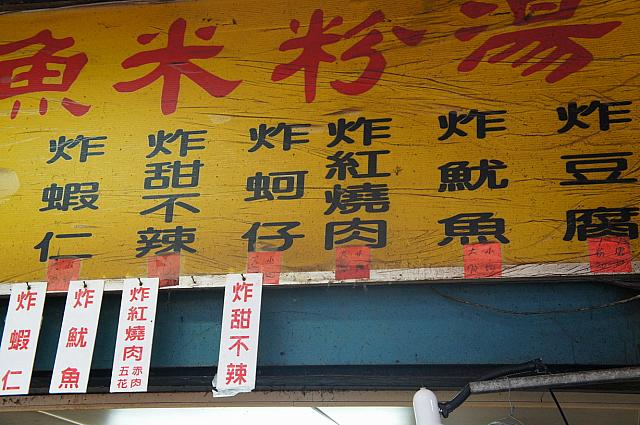 魚米粉湯
炸蝦仁
炸甜不辣
炸蚵仔
炸紅燒肉
炸魷魚
炸豆腐
炸蝦仁
炸魷魚
炸紅燒肉
五花
赤肉
炸甜不辣